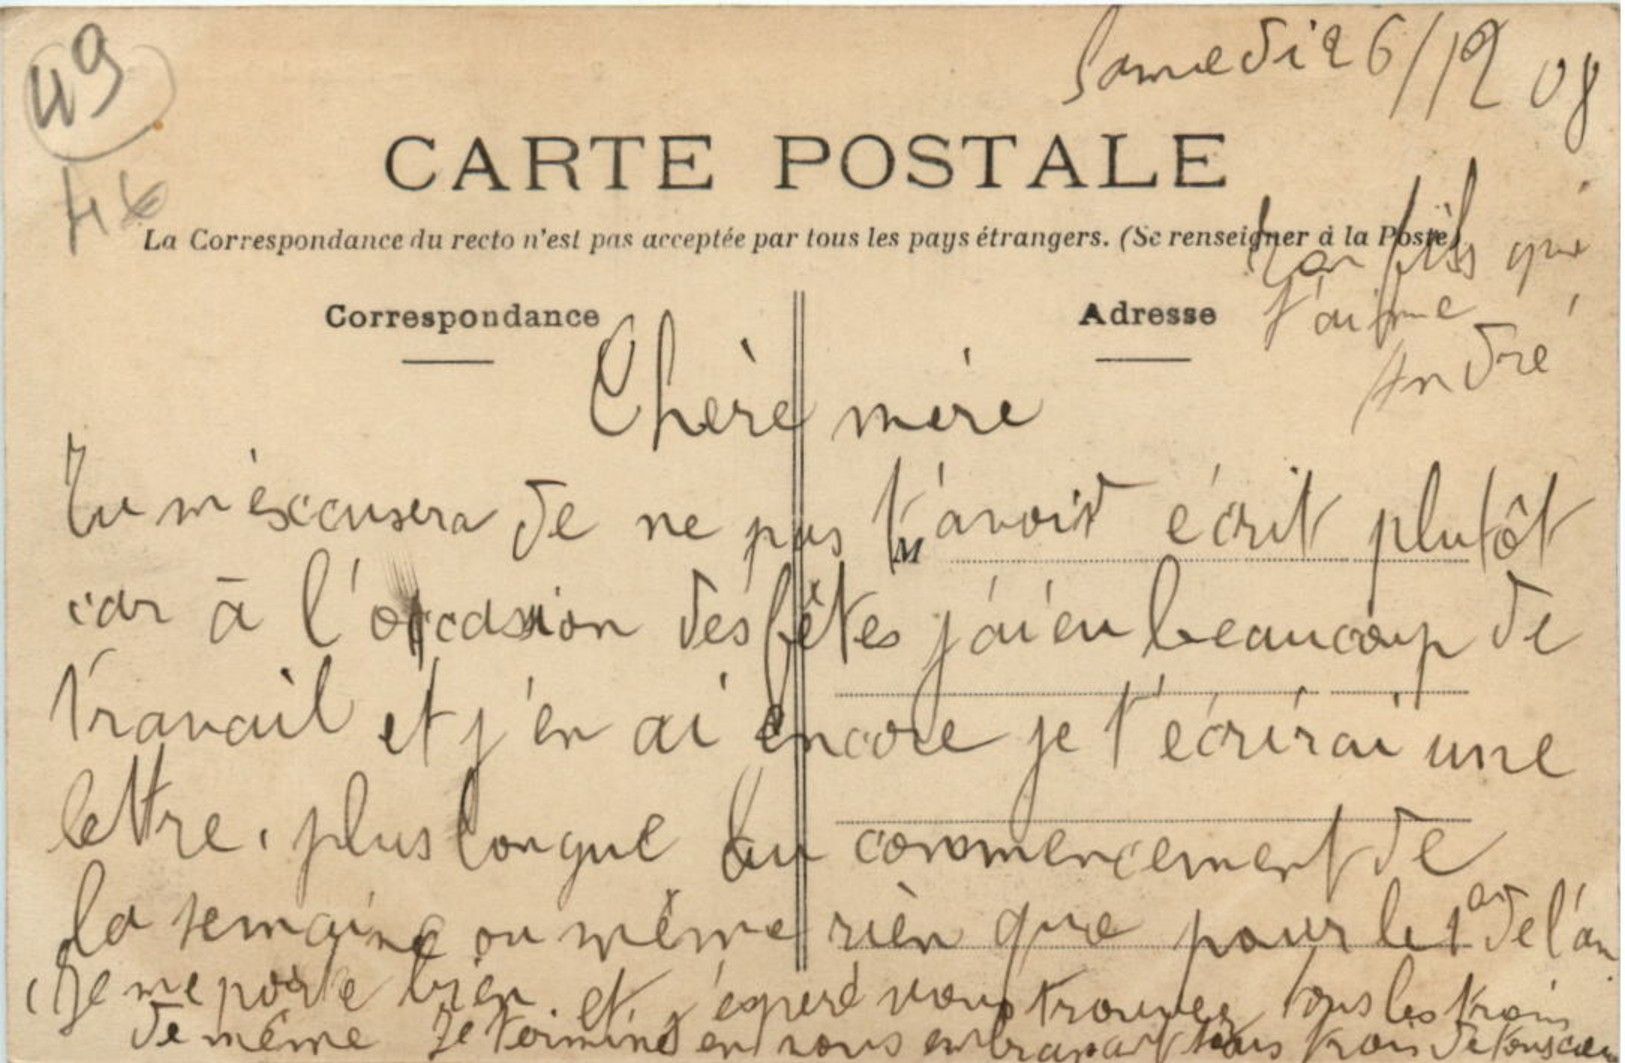 49
4€
Samedi 26/12 08
CARTE POSTALE
La Correspondance du recto n'est pas acceptée par tous les pays étrangers. (Se renseigner à la Poste)
Correspondance
Adresse
Ton fils qui
t'aime
André
Chère mère
Tu m'éxcusera de ne pas t'avoir écrit plutôt
M
car à l'occasion des fêtes j'ai eu beaucoup de
travail et j'en ai encore je t'écrirai une
lettre, plus longue au commencement de
la semaine ou même rien que pour le 1er de l'an
Je me porte bien et j'espère vous trouver tous les trois
de même Je termine en vous embrassant tous trois de tout cœur